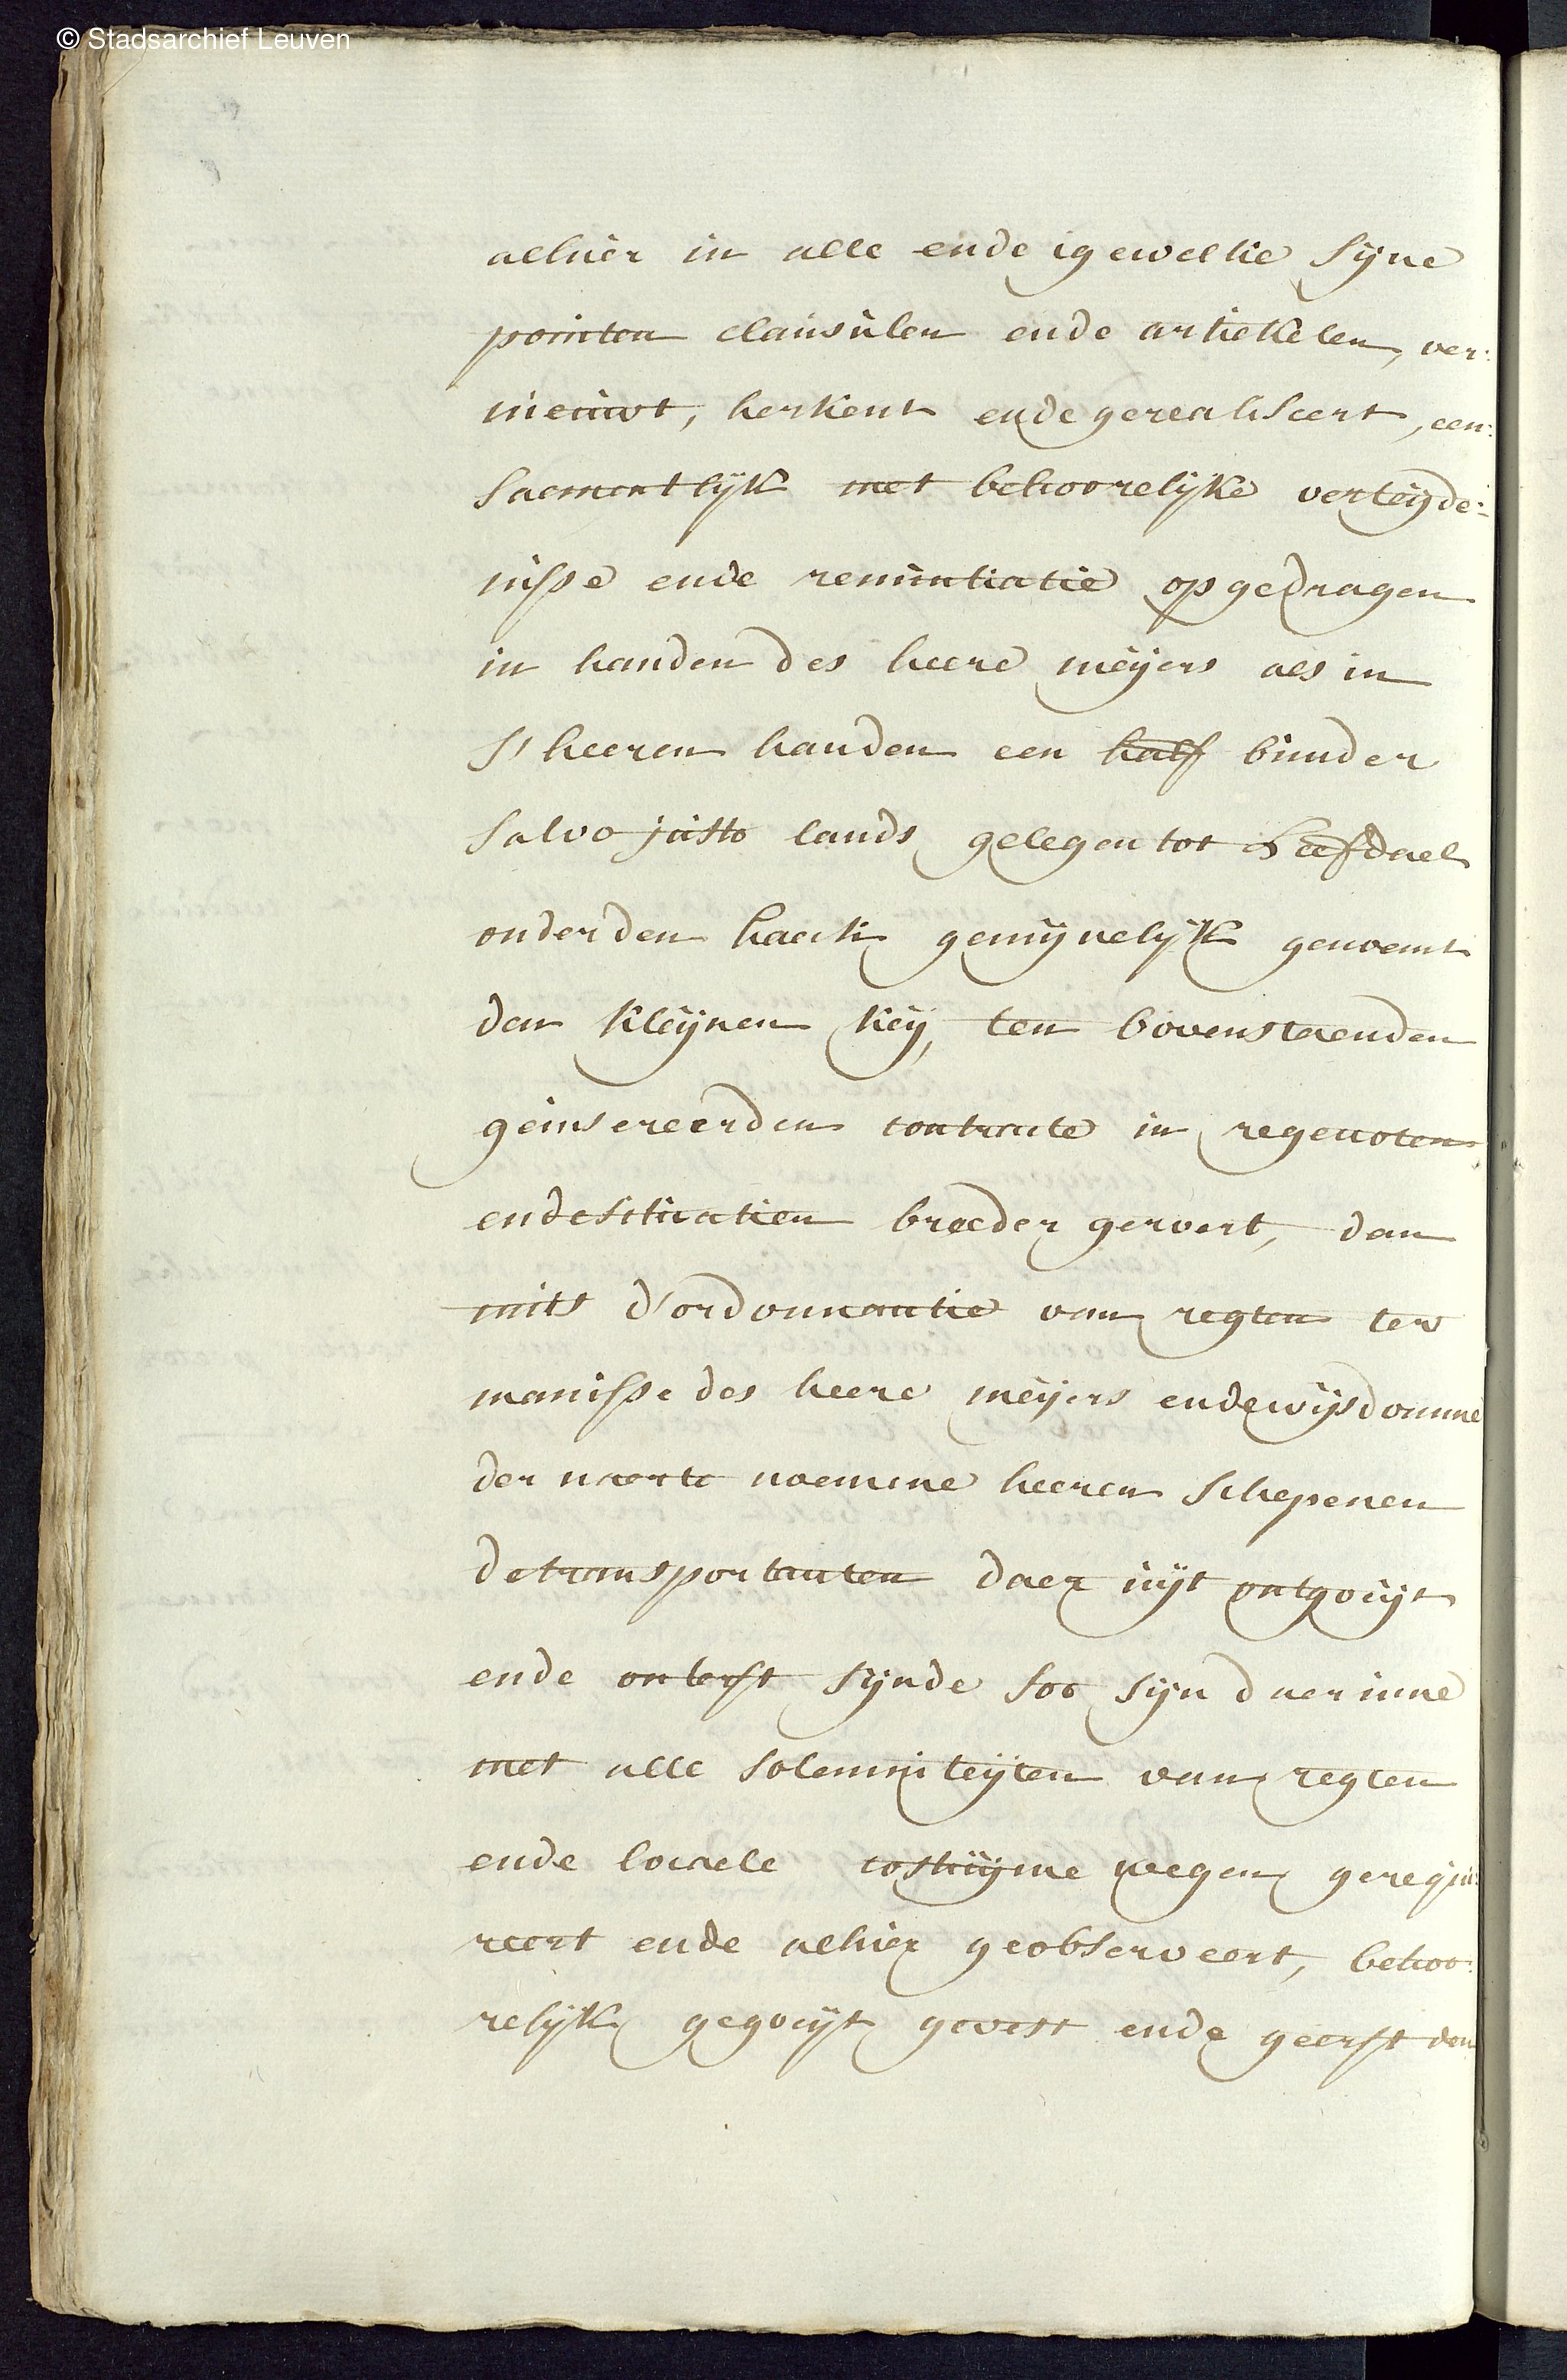 © Stadsarchief Leuven
alhier in alle ende igewelke sijne
pointen clausulen ende artiekelen, ver:
nieuwt, herkent ende gerealiseert, een:
saementlijk met behoorelijke verteijde:
nisse ende renuntiatie opgedragen
in handen des heere meijers als in
s'heeren handen een half bunder
salvo justo lands gelegen tot Leefdael
onder den haeck gemijnelijk genoemt
den kleijnen keij, ten bovenstaenden
geinsereerden contracte in regenoten
ende situatien breeder gervert, dan
mits d'ordonnantie van regten ter
manisse des heere meijers ende wijsdomme
der naerte noemene heeren schepenen
de transportanten daer uijt ontgoeijt
ende onterft sijnde soo sijn daer inne
met alle solemniteijten van regten
ende locaele costuijme wegen gerequi:
reert ende alhier geobserveert, behoo:
relijk gegoeijt gevest ende geerft den